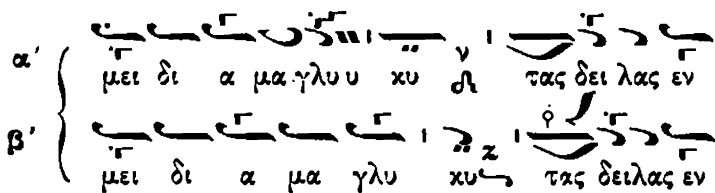 α'
μει δι α μα γλυ υ κυ τας δει λας εν
β'
μει δι α μα γλυ κυ τας δειλας εν